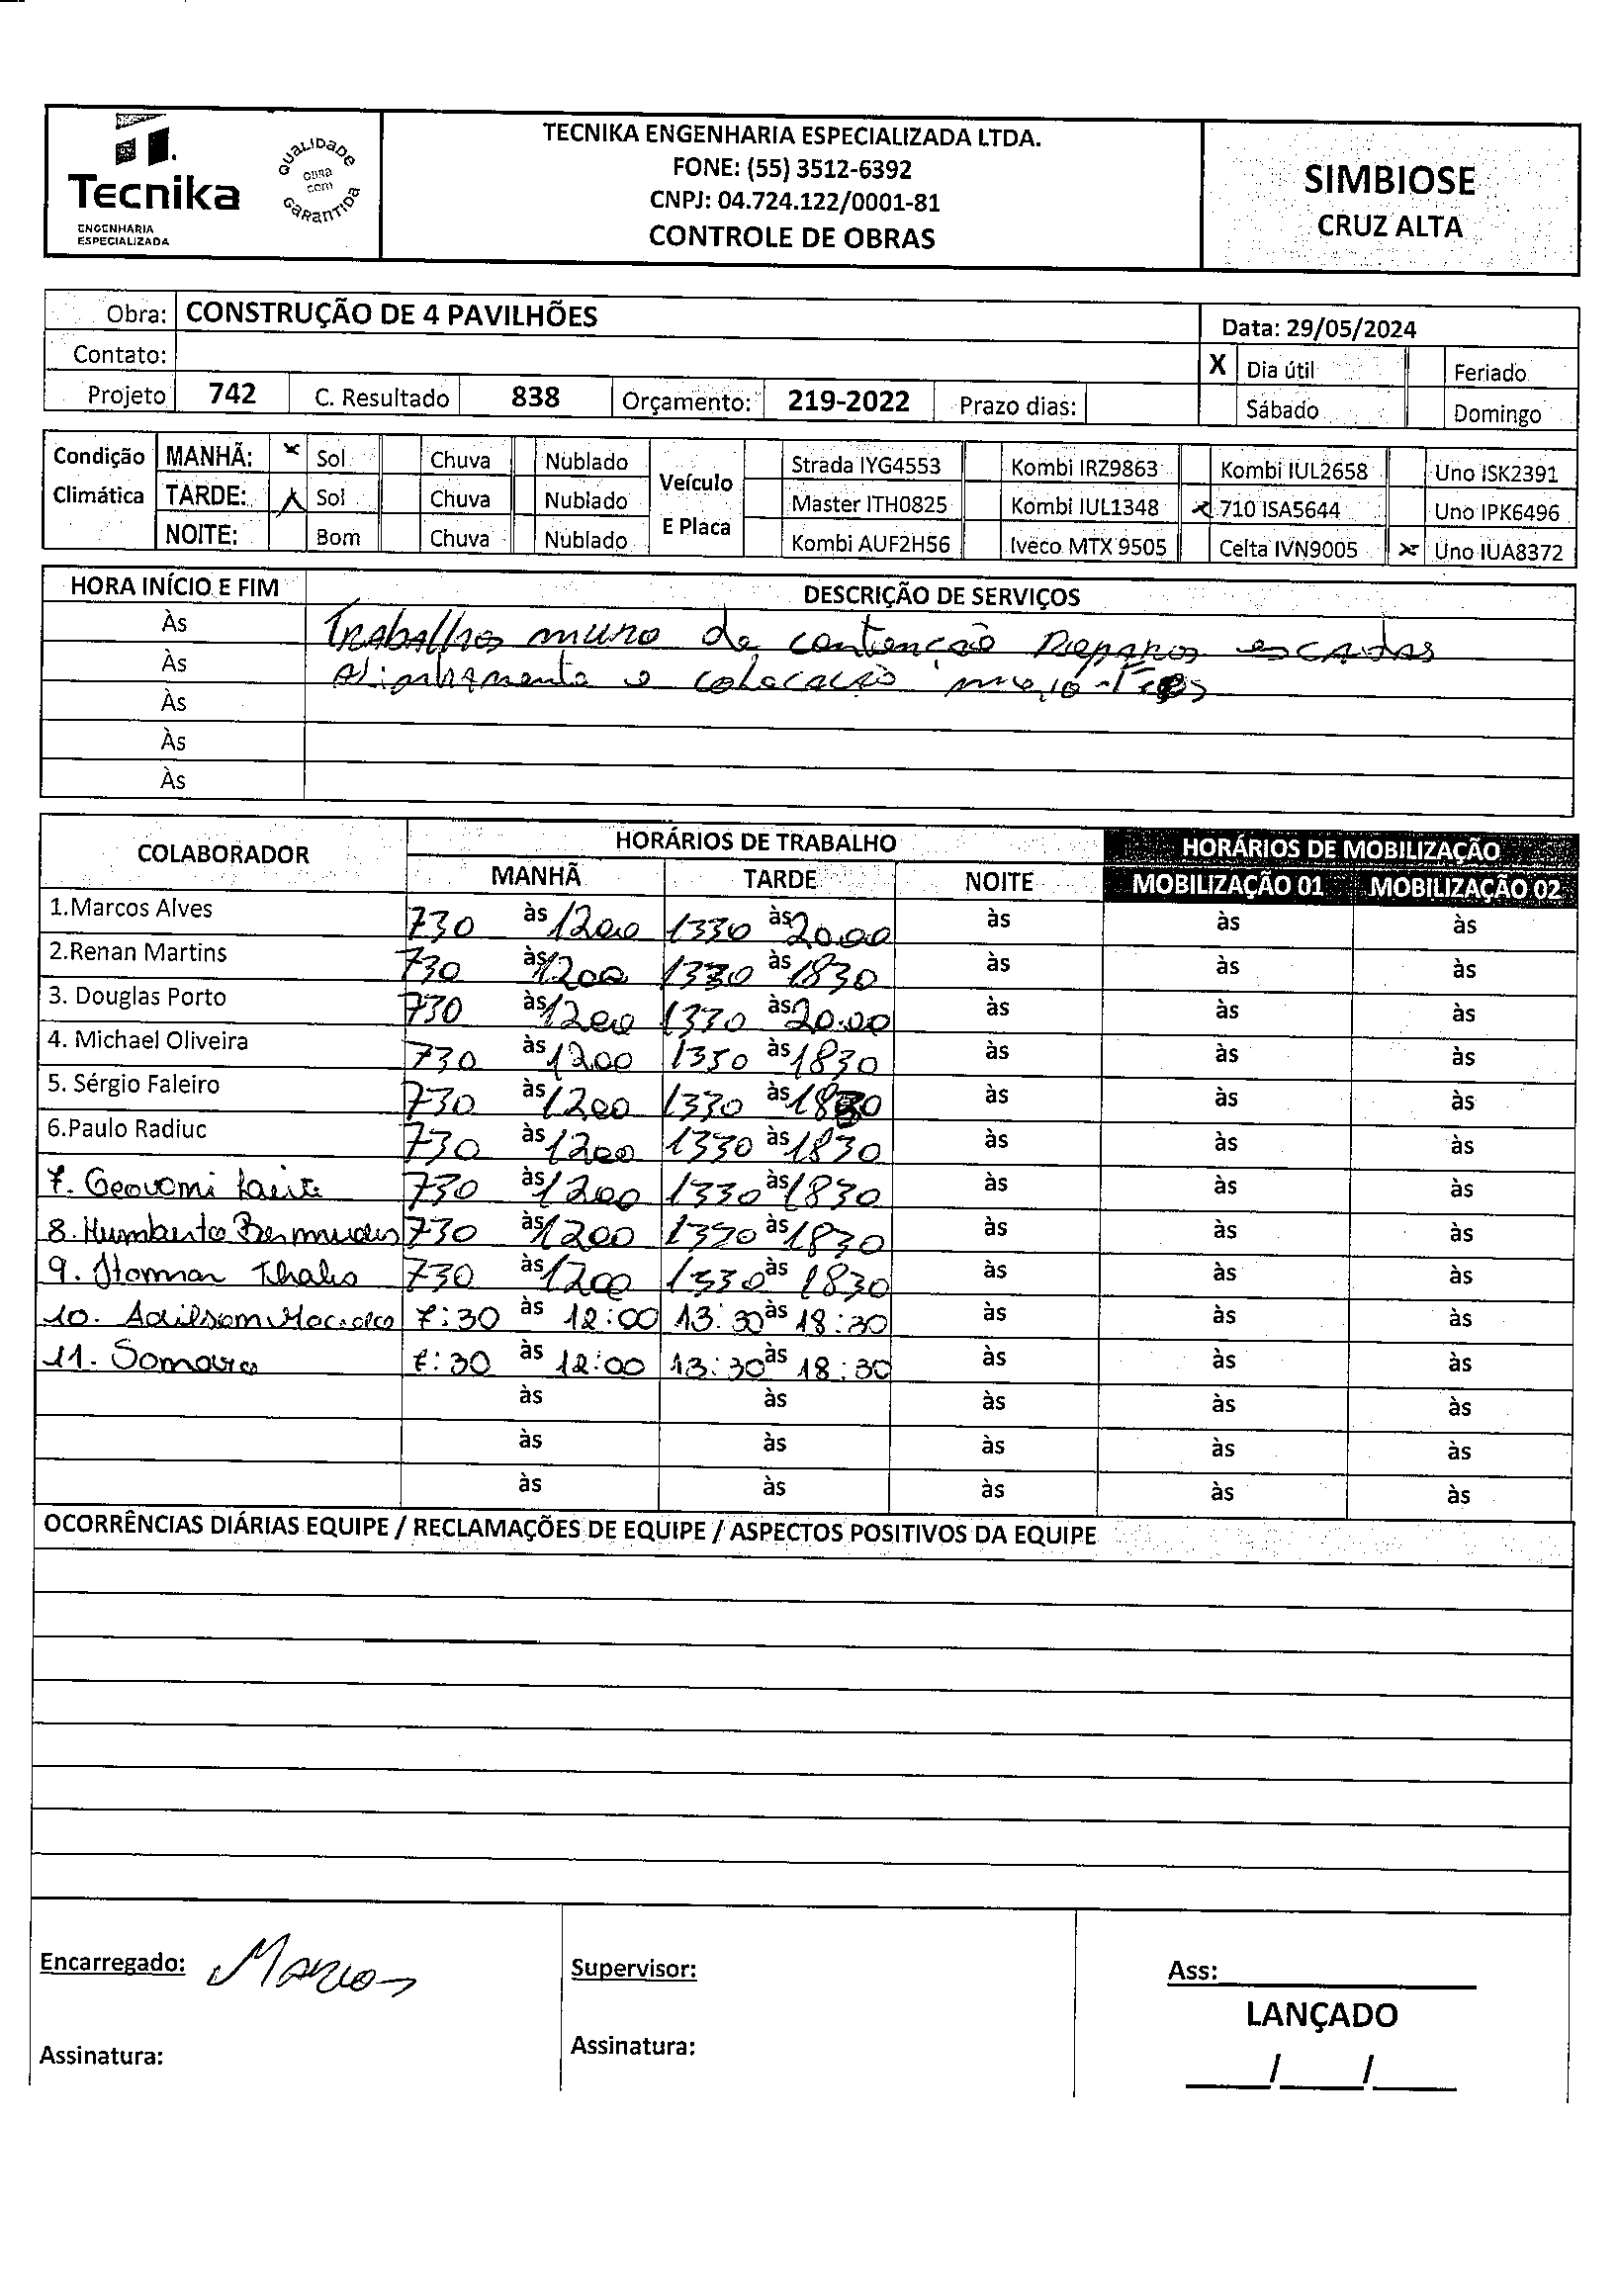 Tecnika
ENGENHARIA
ESPECIALIZADA
QUALIDADE
OBRA
COM
GARANTIDA
TECNIKA ENGENHARIA ESPECIALIZADA LTDA.
FONE: (55) 3512-6392
CNPJ: 04.724.122/0001-81
CONTROLE DE OBRAS
SIMBIOSE
CRUZ ALTA
Obra: CONSTRUÇÃO DE 4 PAVILHÕES Data: 29/05/2024
Contato: X Dia útil Feriado
Projeto 742 C. Resultado 838 Orçamento: 219-2022 Prazo dias: Sábado Domingo
Condição MANHÃ: x Sol Chuva Nublado Veículo Strada IYG4553 Kombi IRZ9863 Kombi IUL2658 Uno ISK2391
Climática TARDE: x Sol Chuva Nublado E Placa Master ITH0825 Kombi IUL1348 x 710 ISA5644 Uno IPK6496
NOITE: Bom Chuva Nublado Kombi AUF2H56 Iveco MTX 9505 Celta IVN9005 x Uno IUA8372
HORA INÍCIO E FIM DESCRIÇÃO DE SERVIÇOS
Às Trabalhos muro de contenção Reparos escadas
Às Alinhamento e colocação
Às
Às
Às
COLABORADOR HORÁRIOS DE TRABALHO HORÁRIOS DE MOBILIZAÇÃO
MANHÃ TARDE NOITE MOBILIZAÇÃO 01 MOBILIZAÇÃO 02
1.Marcos Alves 730 às 1200 1330 às 20.00 às às às
2.Renan Martins 730 às 1200 1330 às 1830 às às às
3. Douglas Porto 730 às 1200 1330 às 20.00 às às às
4. Michael Oliveira 730 às 1200 1330 às 1830 às às às
5. Sérgio Faleiro 730 às 1200 1330 às 1830 às às às
6.Paulo Radiuc 730 às 1200 1330 às 1830 às às às
7. Geovani Leite 730 às 1200 1330 às 1830 às às às
8. Humberto Bermudes 730 às 1200 1330 às 1830 às às às
9. Thales 730 às 1200 1330 às 1830 às às às
10. Adilson Macedo 7:30 às 12:00 13:30 às 18:30 às às às
11. Samara 7:30 às 12:00 13:30 às 18:30 às às às
às às às às às
às às às às às
às às às às às
OCORRÊNCIAS DIÁRIAS EQUIPE / RECLAMAÇÕES DE EQUIPE / ASPECTOS POSITIVOS DA EQUIPE
Encarregado: Marcos Supervisor: Ass:
LANÇADO
Assinatura: Assinatura: / /